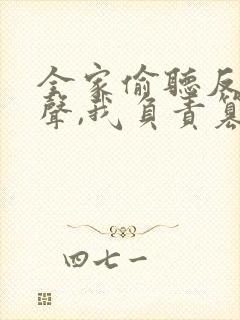 全家偷聽反
聲,我負責篡
四七一